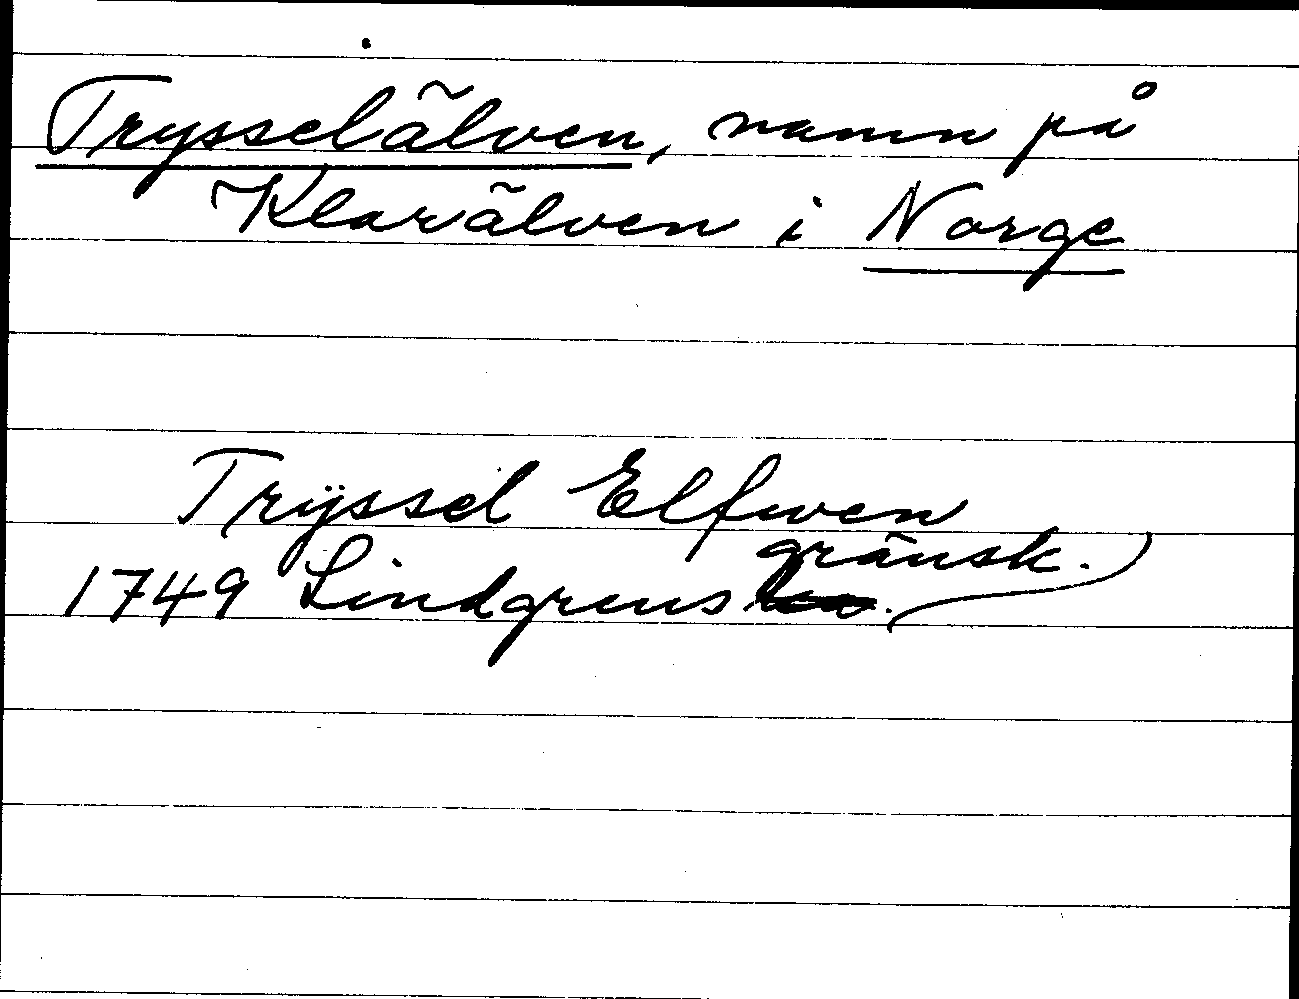 Trysselälven, namn på
Klarälven i Norge
Trÿssel Elfwen
gränsk.
1749 Lindgrens